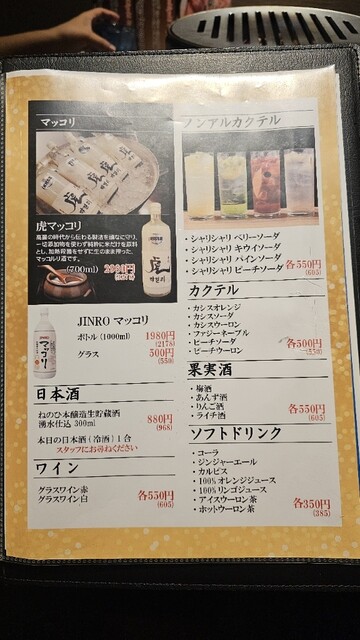 マッコリ
虎マッコリ
高麗の時代から伝わる製法を頑なに守り、
一切添加物を使わず純粋に米だけを原料
とし、加熱殺菌をせずに生のまま押した、
マッコルリ酒です。
(700ml) 2980円
虎
막걸리
JINRO マッコリ
ボトル(1000ml) 1980円
(2178)
グラス 500円
(550)
JINRO
マッコリ
日本酒
ねのひ本醸造生貯蔵酒
湧水仕込 300ml 880円
(968)
本日の日本酒(冷酒)1合
スタッフにお尋ねください
ワイン
グラスワイン赤
グラスワイン白 各550円
(605)
ノンアルカクテル
・シャリシャリ ベリーソーダ
・シャリシャリ キウイソーダ
・シャリシャリ パインソーダ
・シャリシャリ ピーチソーダ 各550円
(605)
カクテル
・カシスオレンジ
・カシスソーダ
・カシスウーロン
・ファジーネーブル
・ピーチソーダ
・ピーチウーロン 各500円
(550)
果実酒
・梅酒
・あんず酒
・りんご酒
・ライチ酒 各550円
(605)
ソフトドリンク
・コーラ
・ジンジャーエール
・カルピス
・100%オレンジジュース
・100%リンゴジュース
・アイスウーロン茶
・ホットウーロン茶 各350円
(385)